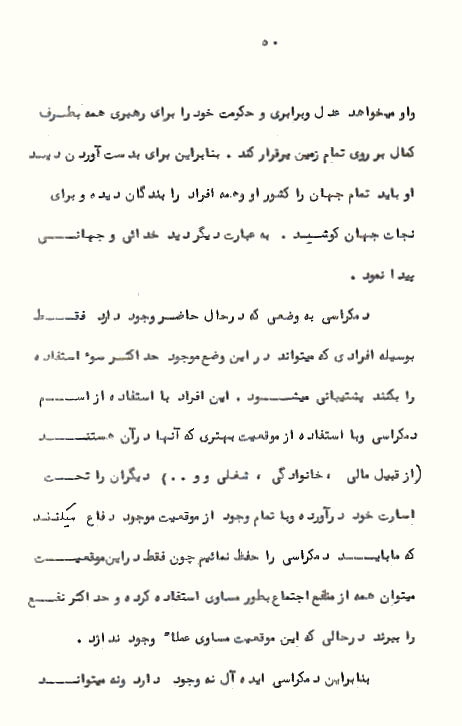 ۵۰
واو میخواهد عدل وبرابری و حکومت خود را برای رهبری همه بطرف
کمال بر روی تمام زمین برقرار کند . بنابراین برای بدست آوردن دید
او باید تمام جهان را کشور او وهمه افراد را بندگان دیده و برای
نجات جهان کوشید . به عبارت دیگر دید خدائی و جهانی
پیدا نمود .
دمکراسی به وضعی که درحال حاضر وجود دارد فقط
بوسیله افرادی که میتواند در این وضع موجود حداکثر سوء استفاده
را بکنند پشتیبانی میشود . این افراد با استفاده از اسم
دمکراسی وبا استفاده از موقعیت بهتری که آنها درآن هستند
(از قبیل مالی ، خانوادگی ، شغلی و و ۰۰) دیگران را تحت
اسارت خود درآورده وبا تمام وجود از موقعیت موجود دفاع میکنند
که ماباید دمکراسی را حفظ نمائیم چون فقط دراین موقعیت
میتوان همه از منافع اجتماع بطور مساوی استفاده کرده و حداکثر نفع
را ببرند درحالی که این موقعیت مساوی عملاً وجود ندارد .
بنابراین دمکراسی ایده آل نه وجود دارد ونه میتواند